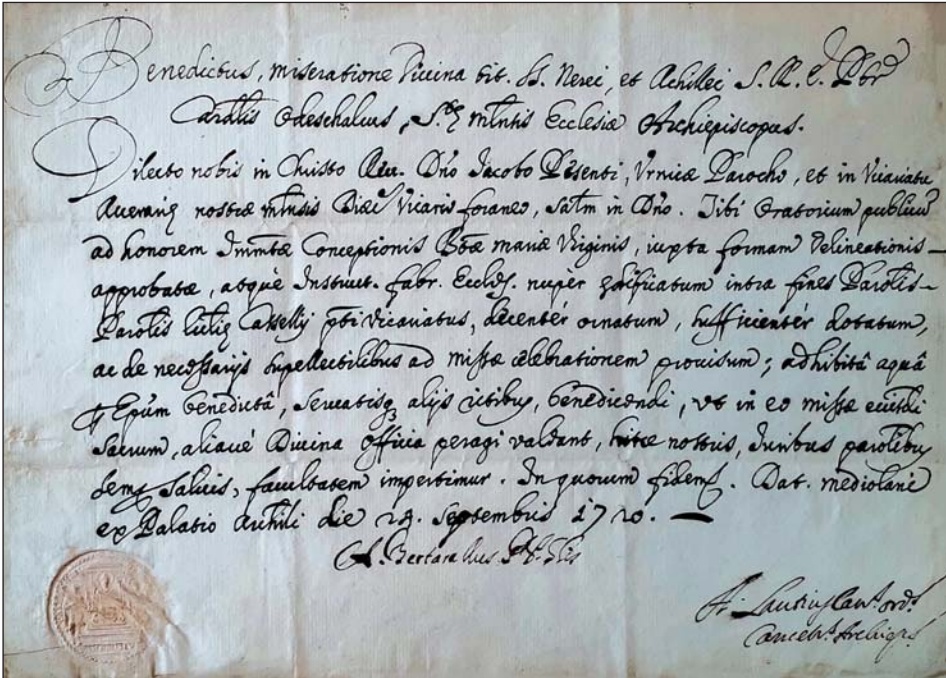 Benedictus, miseratione Divina tit. SS. Nerei, et Achillei S. R. E. Pbr
Cardlis Odeschalcus, S. Mlntis Ecclesiæ Archiepiscopus.
Dilecto nobis in Christo Rev. Dno Jacobo Pesenti, Vrnicæ Parocho, et in Vicariatu
nostræ mlnsis Vicario foraneo, Satm in Dno. Tibi Oratorium publicu
ad honorem Immtæ Conceptionis Btæ mariæ Virginis, iuxta formam delineationis
approbatæ, atque Instruct. fabr. Eccles. nuper ædificatum intra fines Parolis
Parolis pti vicariatus, decenter ornatum, sufficienter dotatum,
ac de necessarijs supellectilibus ad missæ celebrationem prouisum; adhibitâ aquâ
Epum benedictâ, seruatisq alijs ritibus, benedicendi, vt in eo missæ
sacrum, aliaué Divina officia peragi valeant, nostris, Iuribus
saluis, facultatem impertimur. In quorum fidem. Dat. mediolani
ex Palatio Archili die 24. Septembris 1720.